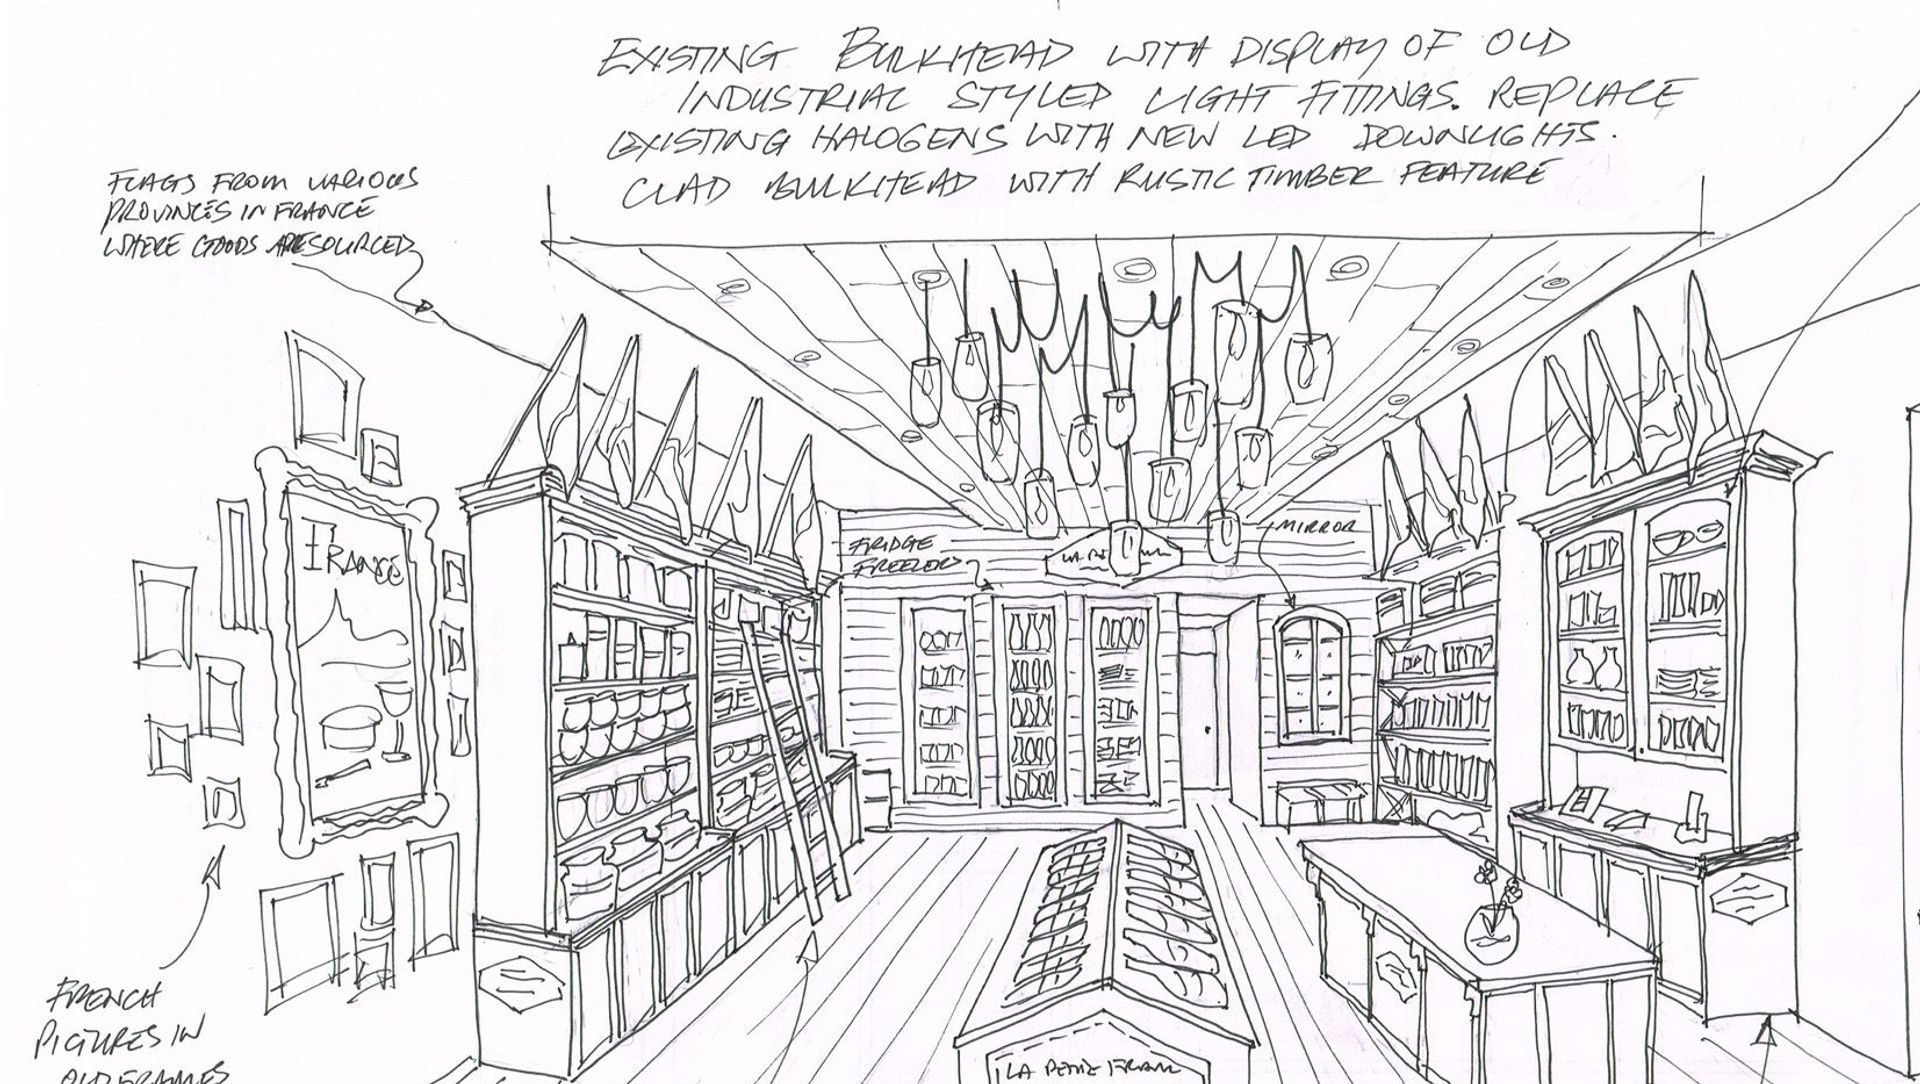 EXISTING BULKHEAD WITH DISPLAY OF OLD
INDUSTRIAL STYLED LIGHT FITTINGS. REPLACE
EXISTING HALOGENS WITH NEW LED DOWNLIGHTS.
CLAD BULKHEAD WITH RUSTIC TIMBER FEATURE
FLAGS FROM VARIOUS
PROVINCES IN FRANCE
WHERE GOODS ARE SOURCED
FRANCE
FRIDGE
FREEZER
MIRROR
FRENCH
PICTURES IN
OLD FRAMES
LA PETITE